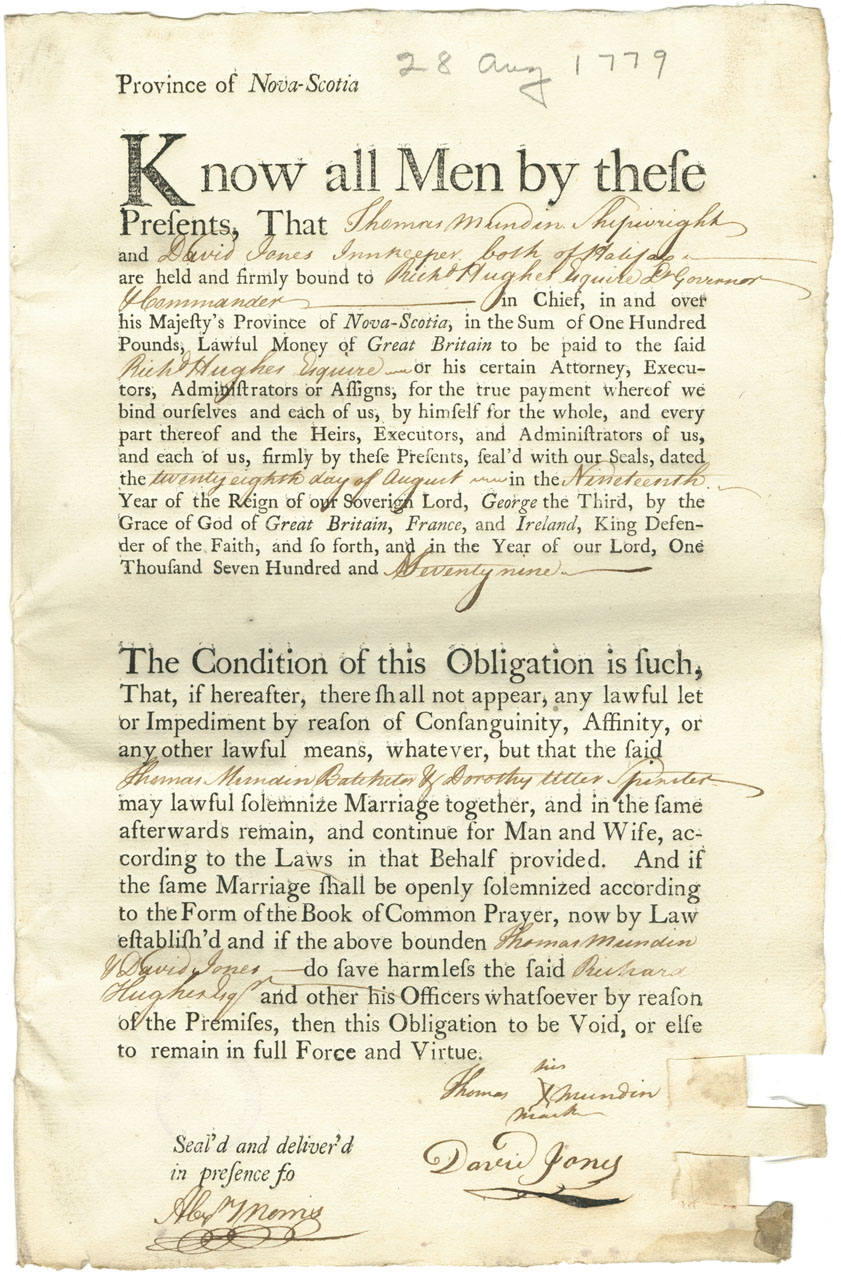 28 Aug 1779
Province of Nova-Scotia
Know all Men by theſe
Preſents, That Thomas Mundin Shipwright
and David Jones Innkeeper both of Halifax
are held and firmly bound to Richd Hughes Esquire Lt Governor
& Commander in Chief, in and over
his Majeſty's Province of Nova-Scotia, in the Sum of One Hundred
Pounds, Lawful Money of Great Britain to be paid to the ſaid
Richd Hughes Esquire or his certain Attorney, Execu-
tors, Adminiſtrators or Aſſigns, for the true payment whereof we
bind ourſelves and each of us, by himſelf for the whole, and every
part thereof and the Heirs, Executors, and Adminiſtrators of us,
and each of us, firmly by theſe Preſents, ſeal'd with our Seals, dated
the twenty eighth day of August in the Nineteenth
Year of the Reign of our Soverign Lord, George the Third, by the
Grace of God of Great Britain, France, and Ireland, King Defen-
der of the Faith, and ſo forth, and in the Year of our Lord, One
Thouſand Seven Hundred and Seventy nine
The Condition of this Obligation is ſuch,
That, if hereafter, there ſhall not appear, any lawful let
or Impediment by reaſon of Conſanguinity, Affinity, or
any other lawful means, whatever, but that the ſaid
Thomas Mundin Batchelor & Dorothy Utler Spinster
may lawful ſolemnize Marriage together, and in the ſame
afterwards remain, and continue for Man and Wife, ac-
cording to the Laws in that Behalf provided. And if
the ſame Marriage ſhall be openly ſolemnized according
to the Form of the Book of Common Prayer, now by Law
eſtabliſh'd and if the above bounden Thomas Mundin
& David Jones do ſave harmleſs the ſaid Richard
Hughes Esqr and other his Officers whatſoever by reaſon
of the Premiſes, then this Obligation to be Void, or elſe
to remain in full Force and Virtue.
his
Thomas X Mundin
mark
Seal'd and deliver'd
in preſence fo
David Jones
Alexr Morris